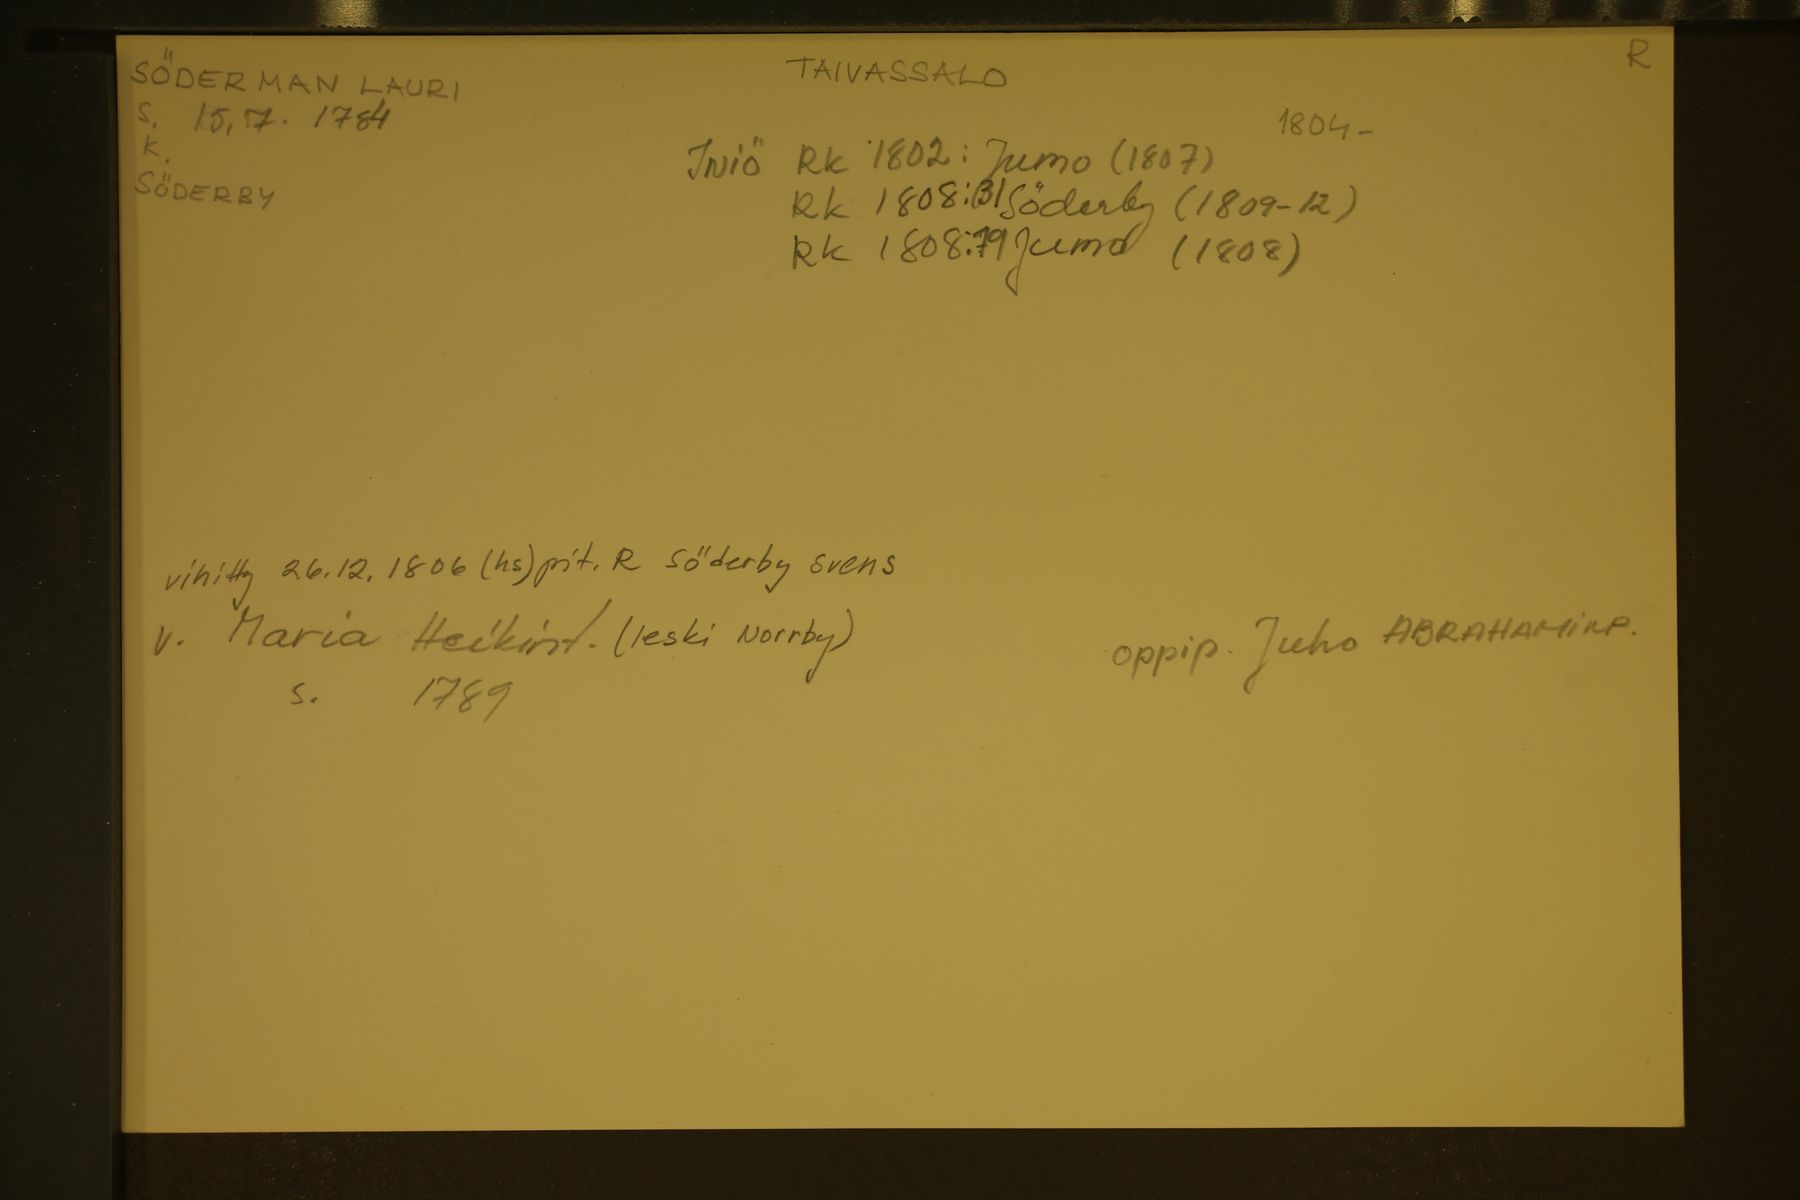 SÖDERMAN LAURI
s. 15.7. 1784
k.
SÖDERBY
TAIVASSALO
R
1804-
Iniö Rk 1802: Jumo (1807)
Rk 1808:131 Söderby (1809-12)
Rk 1808:79 Jumo (1808)
vihitty 26.12.1806 (hs) pit. R Söderby Svens
v. Maria Heikint. (leski Norrby)
s. 1789
oppip. Juho ABRAHAMINP.